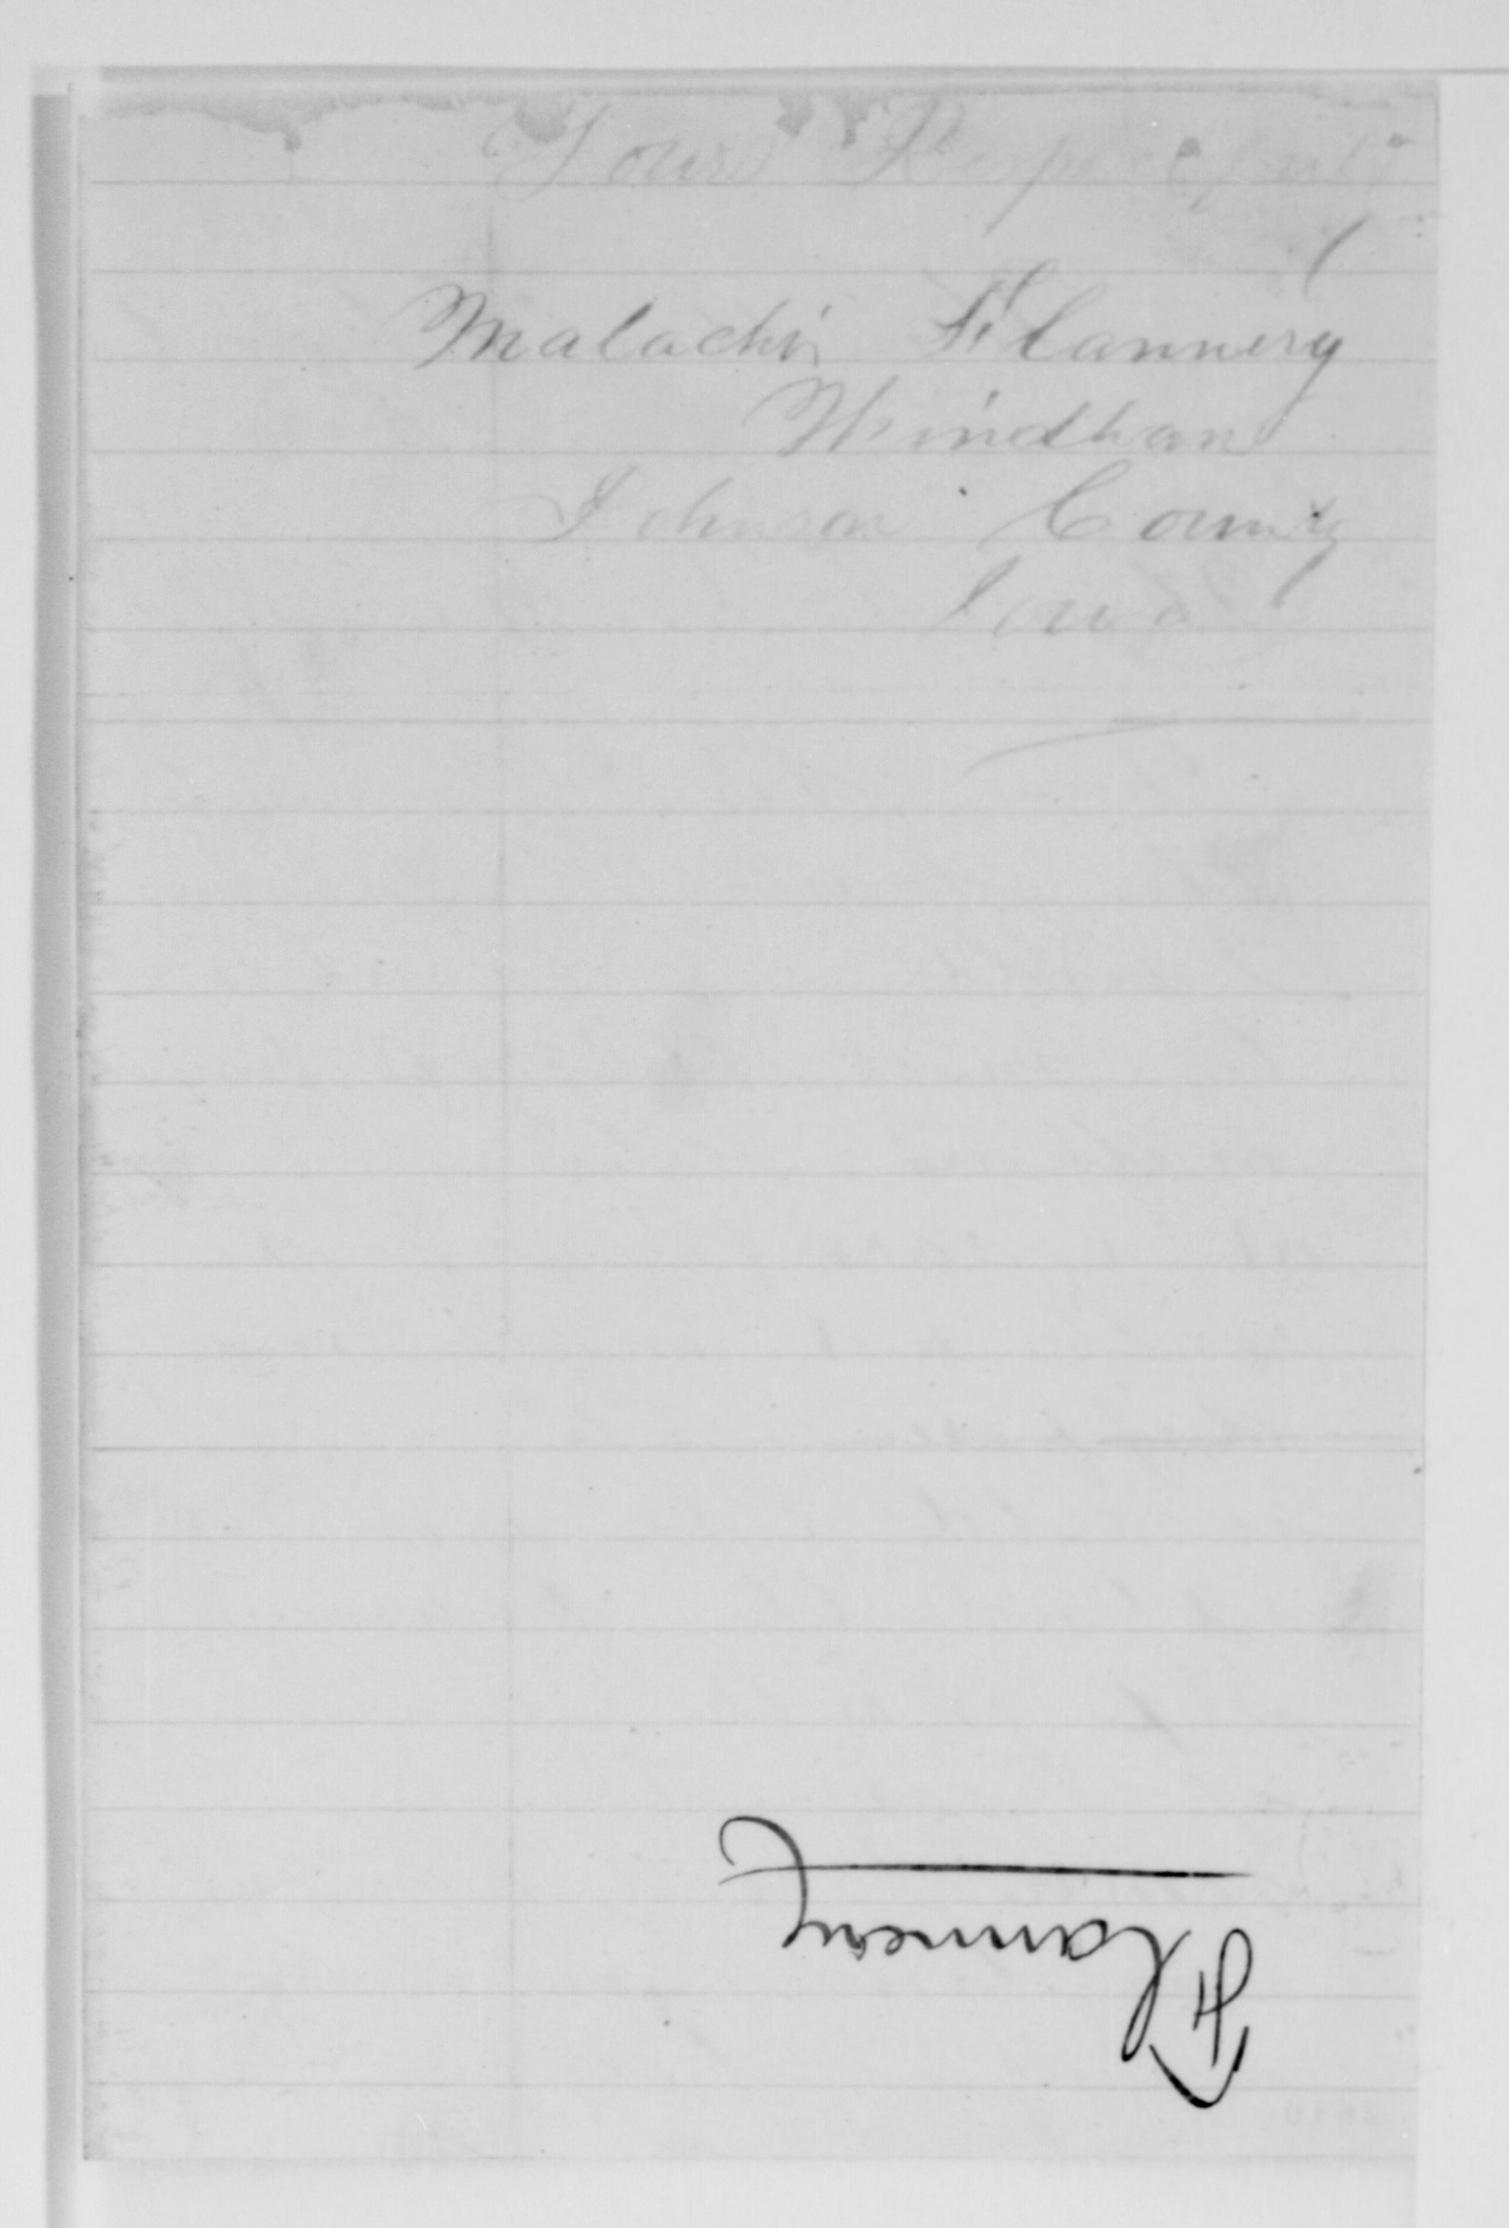 Yours Respectfully
Malachi Flannery
Windham
Johnson County
Iowa
Flannery